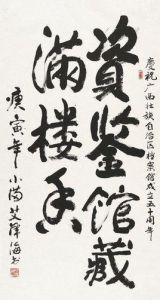 慶祝广西壮族自治区档案馆成立五十周年
资鉴馆藏
满楼香
庚寅年小满艾辉海书